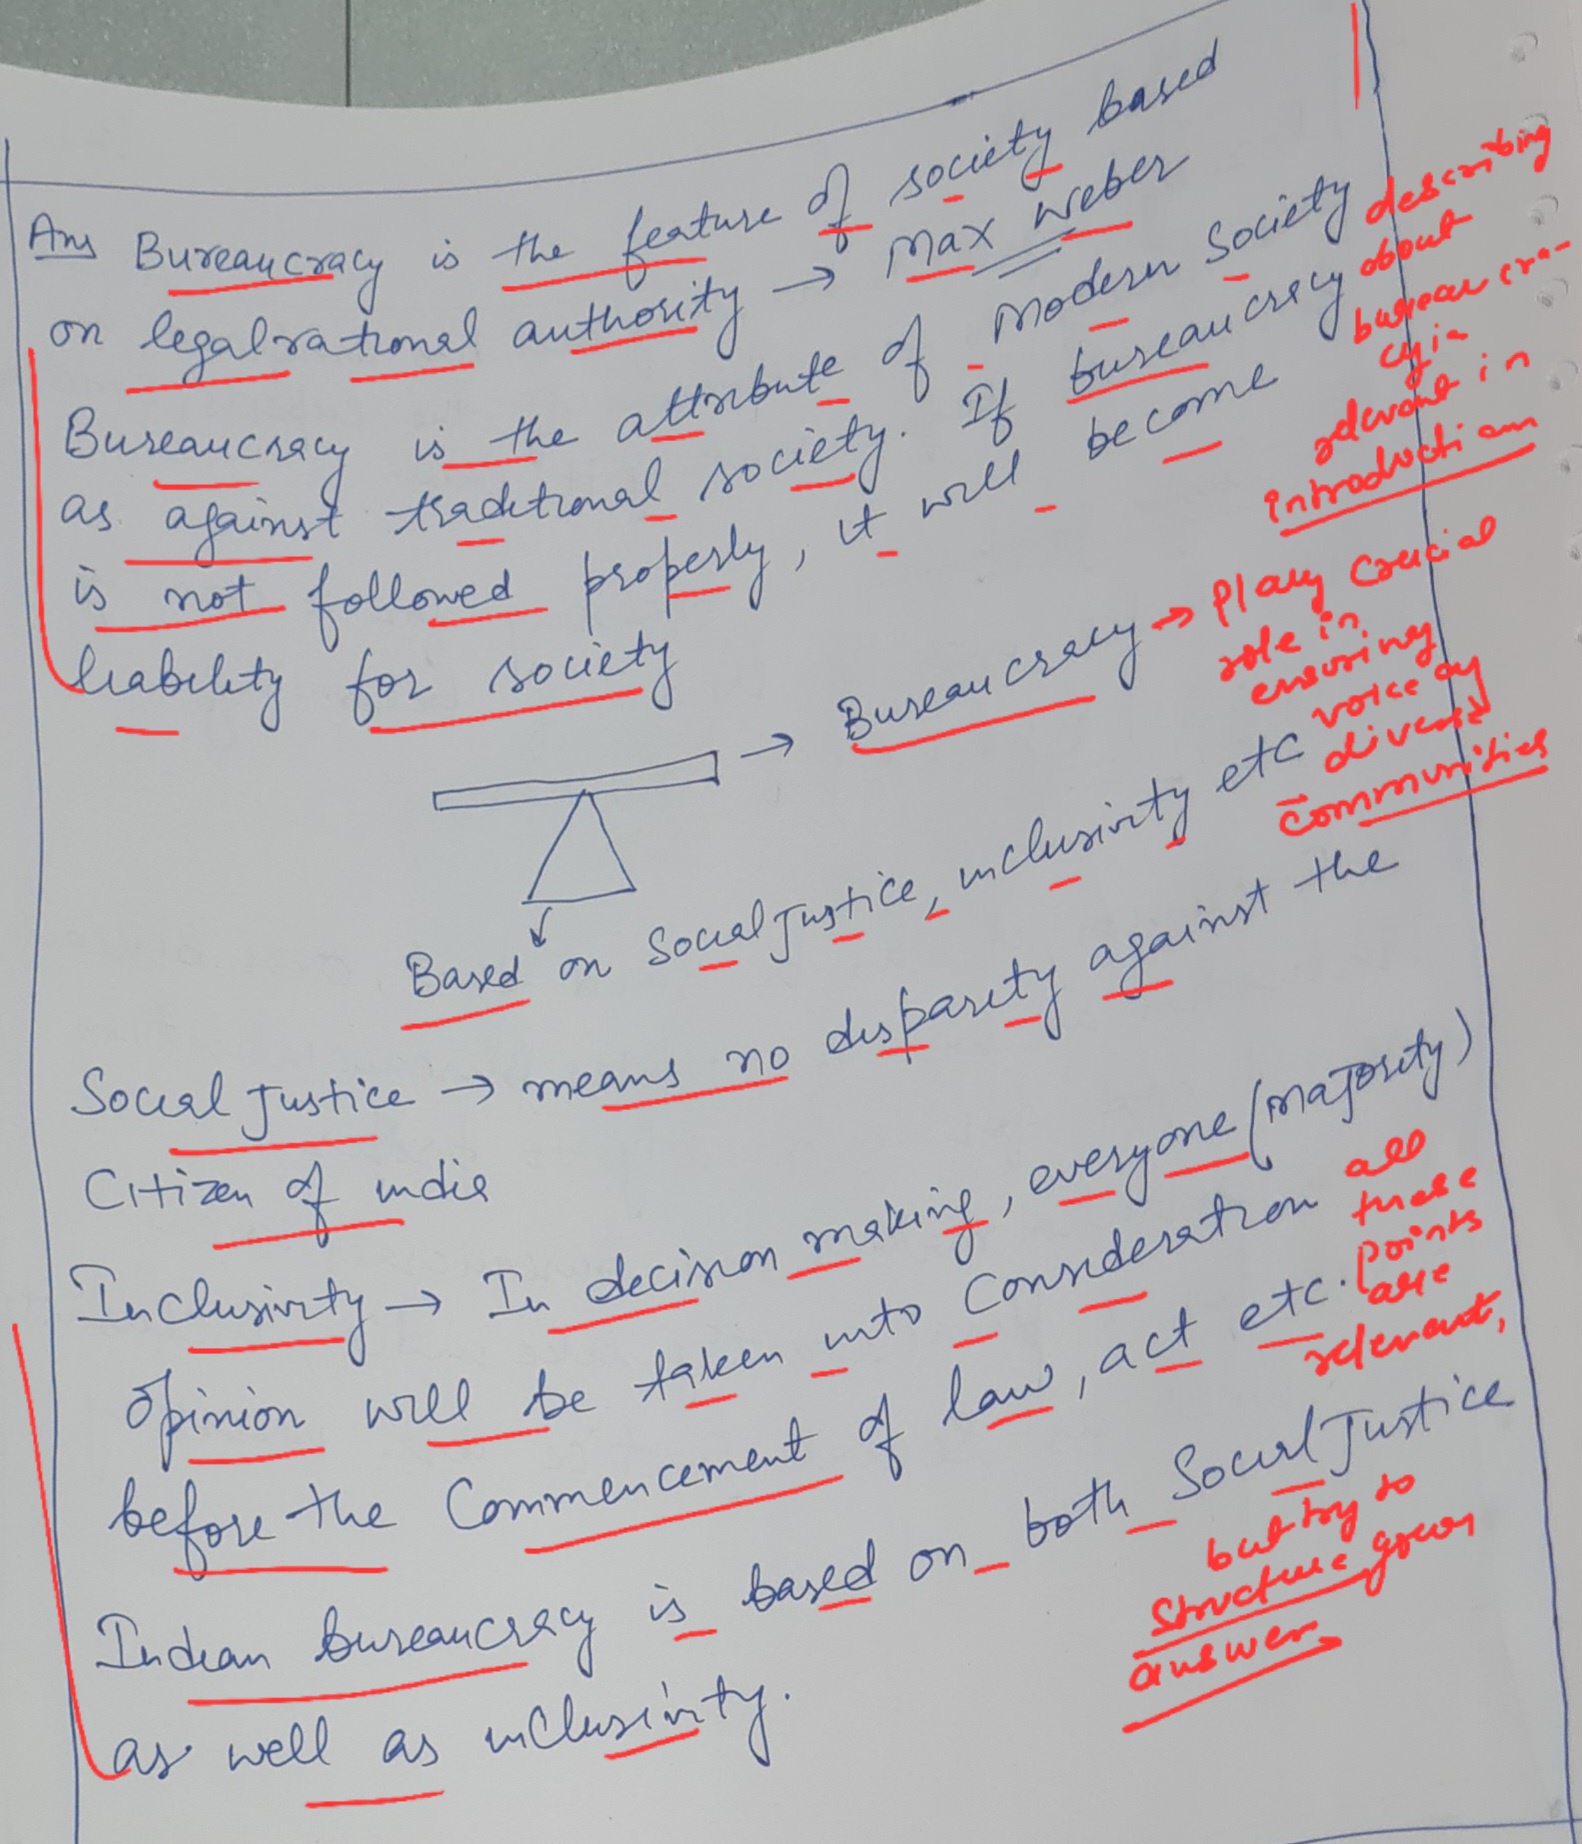 Ans Bureaucracy is the feature of society based
on legal rational authority → Max Weber
Bureaucracy is the attribute of modern Society
as against traditional society. If bureaucracy
is not followed properly, it will become
liability for society
describing
about
bureaucra-
cy is
relevant in
introduction
→ Bureaucracy → Play crucial
role in
ensuring
voice of
diverse
communities
Based on Social Justice, inclusivity etc
Social Justice → means no disparity against the
Citizen of india
Inclusivity → In decision making, everyone (majority)
Opinion will be taken into Consideration
before the Commencement of law, act etc.
all
these
points
are
relevant,
Indian bureaucracy is based on both Social Justice
as well as inclusivity.
but try to
structure your
answer